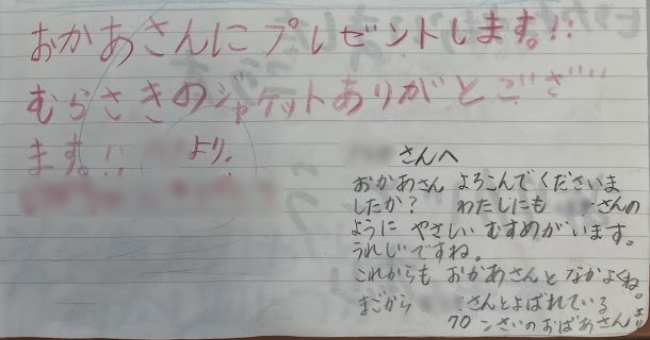 おかあさんにプレゼントします。!!
むらさきのジャケットありがとござい
ます。!! より。
さんへ
おかあさん よろこんでくださいま
したか? わたしにも さんの
ように やさしい むすめがいます。
うれしいですね。
これからも おかあさんと なかよくね。
まごから さんとよばれている
70 さいのおばあさん より